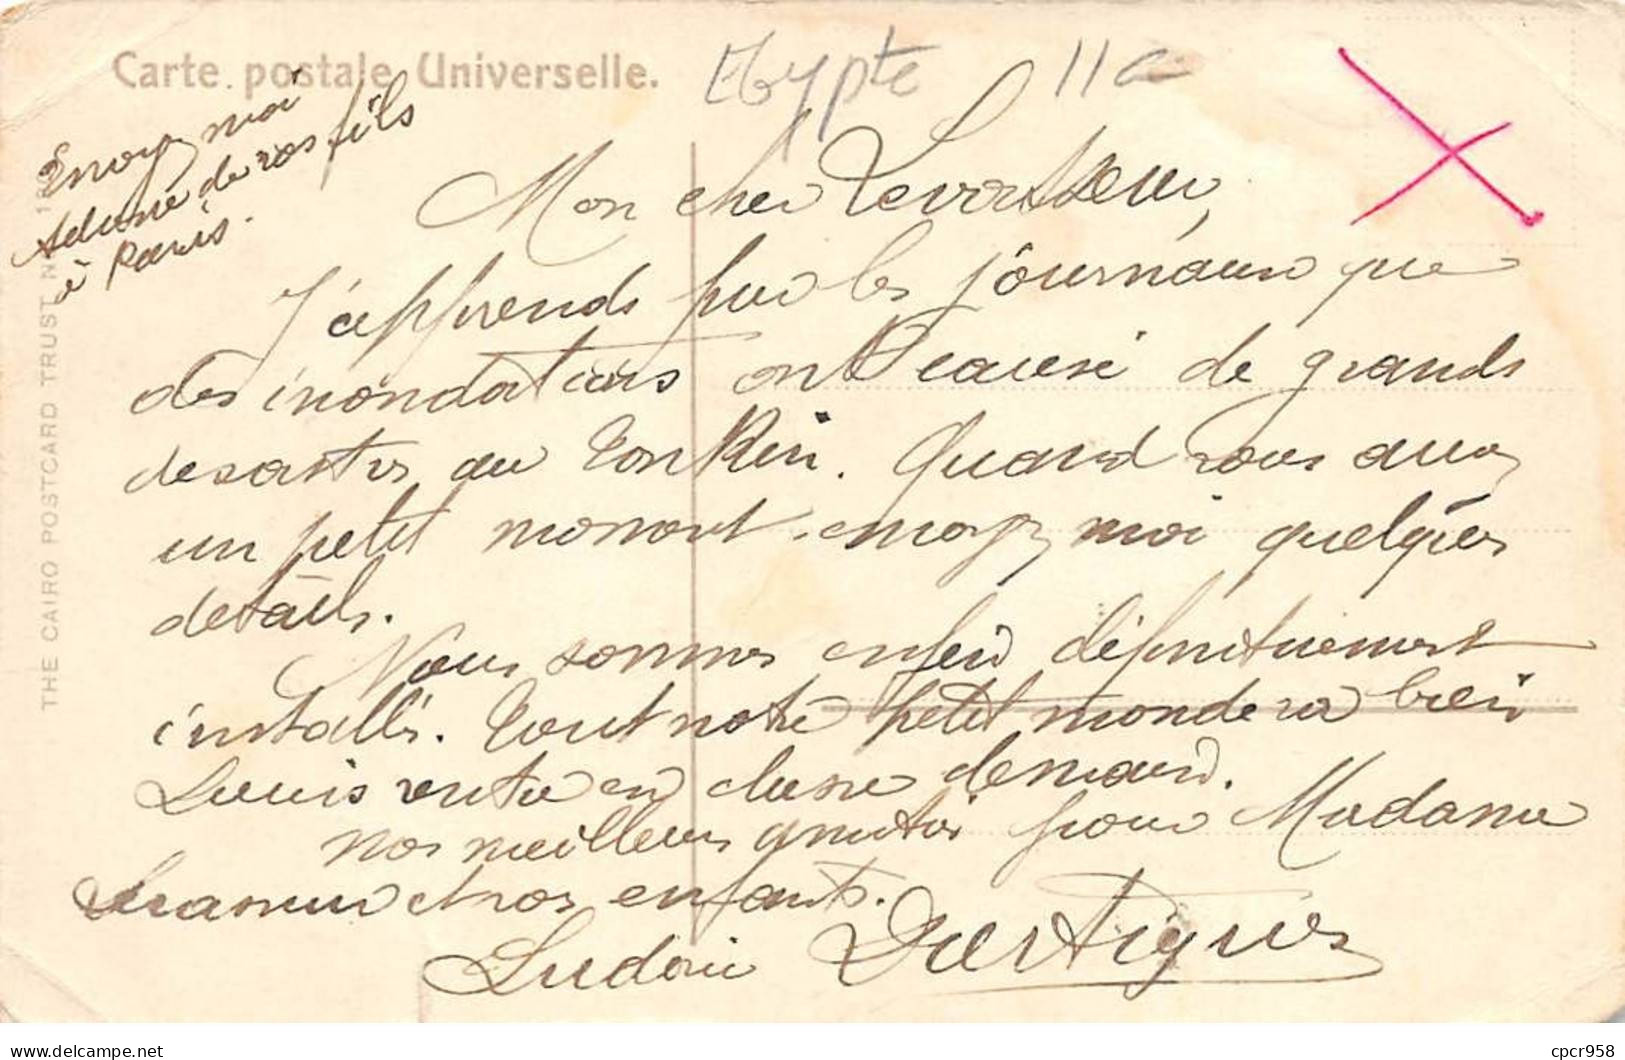 Carte postale Universelle.
Egypte 11c
Envoyez moi
Adresse de vos fils
à Paris.
THE CAIRO POSTCARD TRUST N
Mon cher
J'apprends par les journaux que
des inondations ont causé de grands
desastres au Tonkin. Quand vous aurez
un petit moment envoyez moi quelques
details.
Nous sommes enfin définitivement
installés. Tout notre petit monde va bien
Louis rentre en classe demain.
nos meilleures amitiés pour Madame
et vos enfants.
Ludovic Dartigues
cpcr958